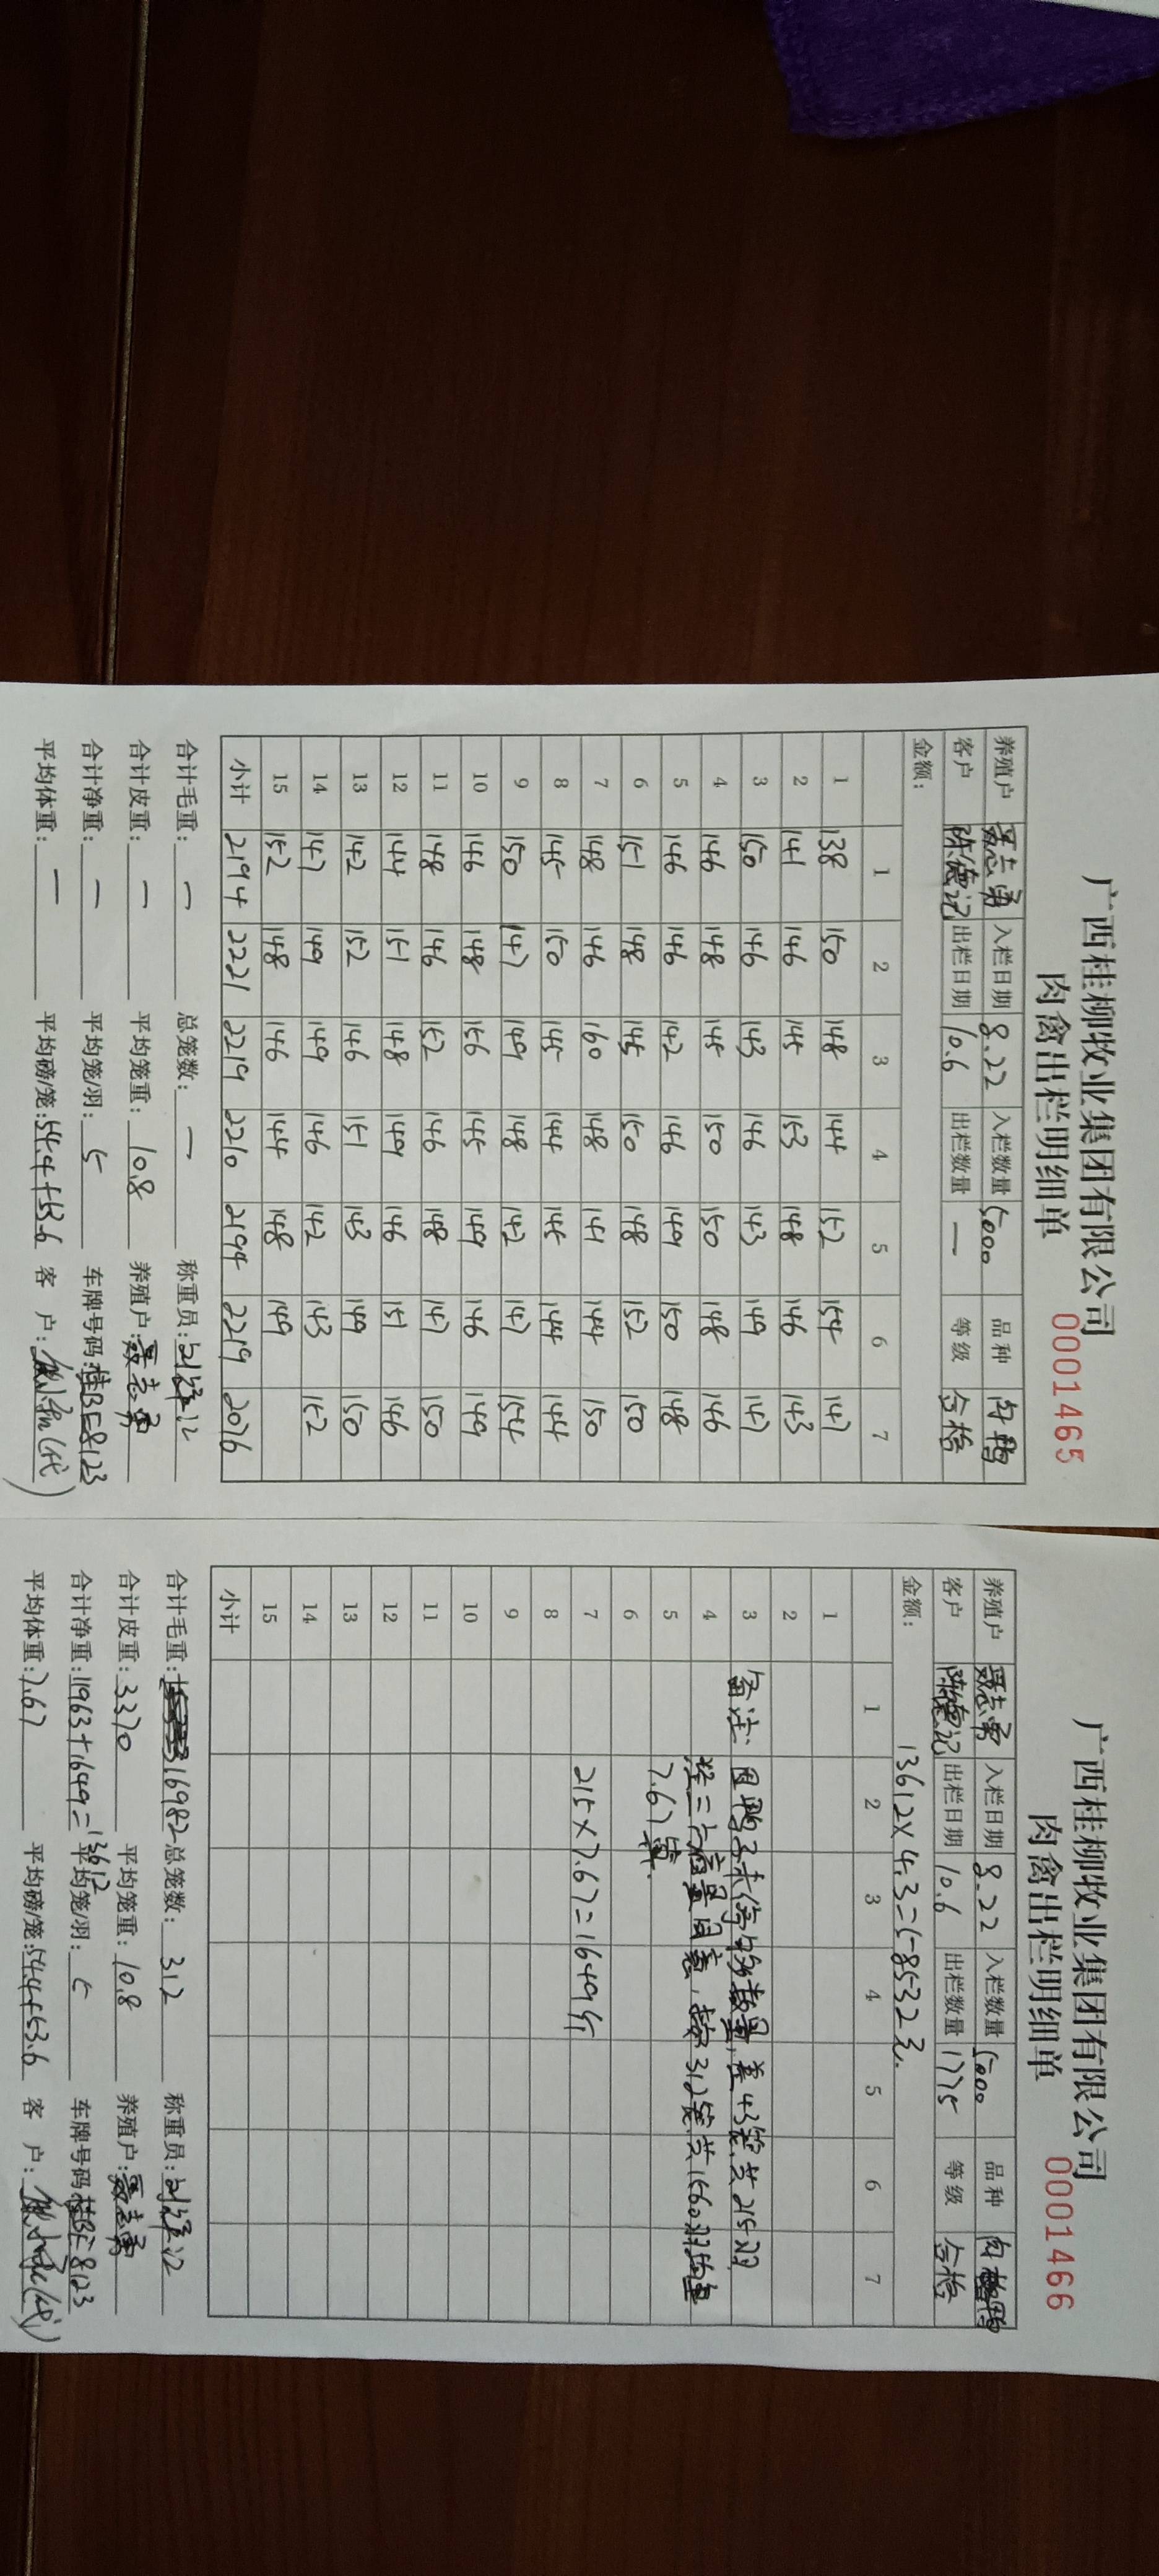 广西桂柳牧业集团有限公司
肉禽出栏明细单 0001465
养殖户 聂志勇 入栏日期 8.22 入栏数量 5000 品种 肉鸭
客户 陈德记 出栏日期 10.6 出栏数量 — 等级 合格
金额:
1 2 3 4 5 6 7
1 138 150 148 144 152 154 147
2 141 146 144 153 148 146 143
3 150 146 143 146 143 149 147
4 146 148 145 150 150 148 146
5 146 146 142 146 149 150 148
6 151 148 145 150 148 152 150
7 148 146 160 148 141 144 150
8 145 150 145 144 144 144 144
9 150 147 149 148 142 147 154
10 146 148 156 145 149 146 149
11 148 146 152 146 148 147 150
12 144 151 148 149 146 151 146
13 142 152 146 151 143 149 150
14 147 149 149 146 142 143 152
15 152 148 146 144 148 149
小计 2194 2221 2219 2210 2194 2219 2076
合计毛重: — 总笼数: — 称重员:
合计皮重: — 平均笼重: 10.8 养殖户: 聂志勇
合计净重: — 平均笼/羽: 5 车牌号码: 桂BE8123
平均体重: — 平均磅/笼: 54.4+53.6 客 户: (代)
广西桂柳牧业集团有限公司
肉禽出栏明细单 0001466
养殖户 聂志勇 入栏日期 8.22 入栏数量 5000 品种 肉鸭
客户 陈德记 出栏日期 10.6 出栏数量 1775 等级 合格
金额: 13612×4.3=58532元.
1 2 3 4 5 6 7
1
2
3 备注: 因鸭子未够数量,差43笼,共215羽
4 经三方商量同意,按312笼,共1560羽均重
5 7.67算.
6
7 215×7.67=1649斤
8
9
10
11
12
13
14
15
小计
合计毛重: 16982 总笼数: 312 称重员:
合计皮重: 3370 平均笼重: 10.8 养殖户: 聂志勇
合计净重: 11963+1649=13612 平均笼/羽: 5 车牌号码: 桂BE8123
平均体重: 7.67 平均磅/笼: 54.4+53.6 客 户: (代)